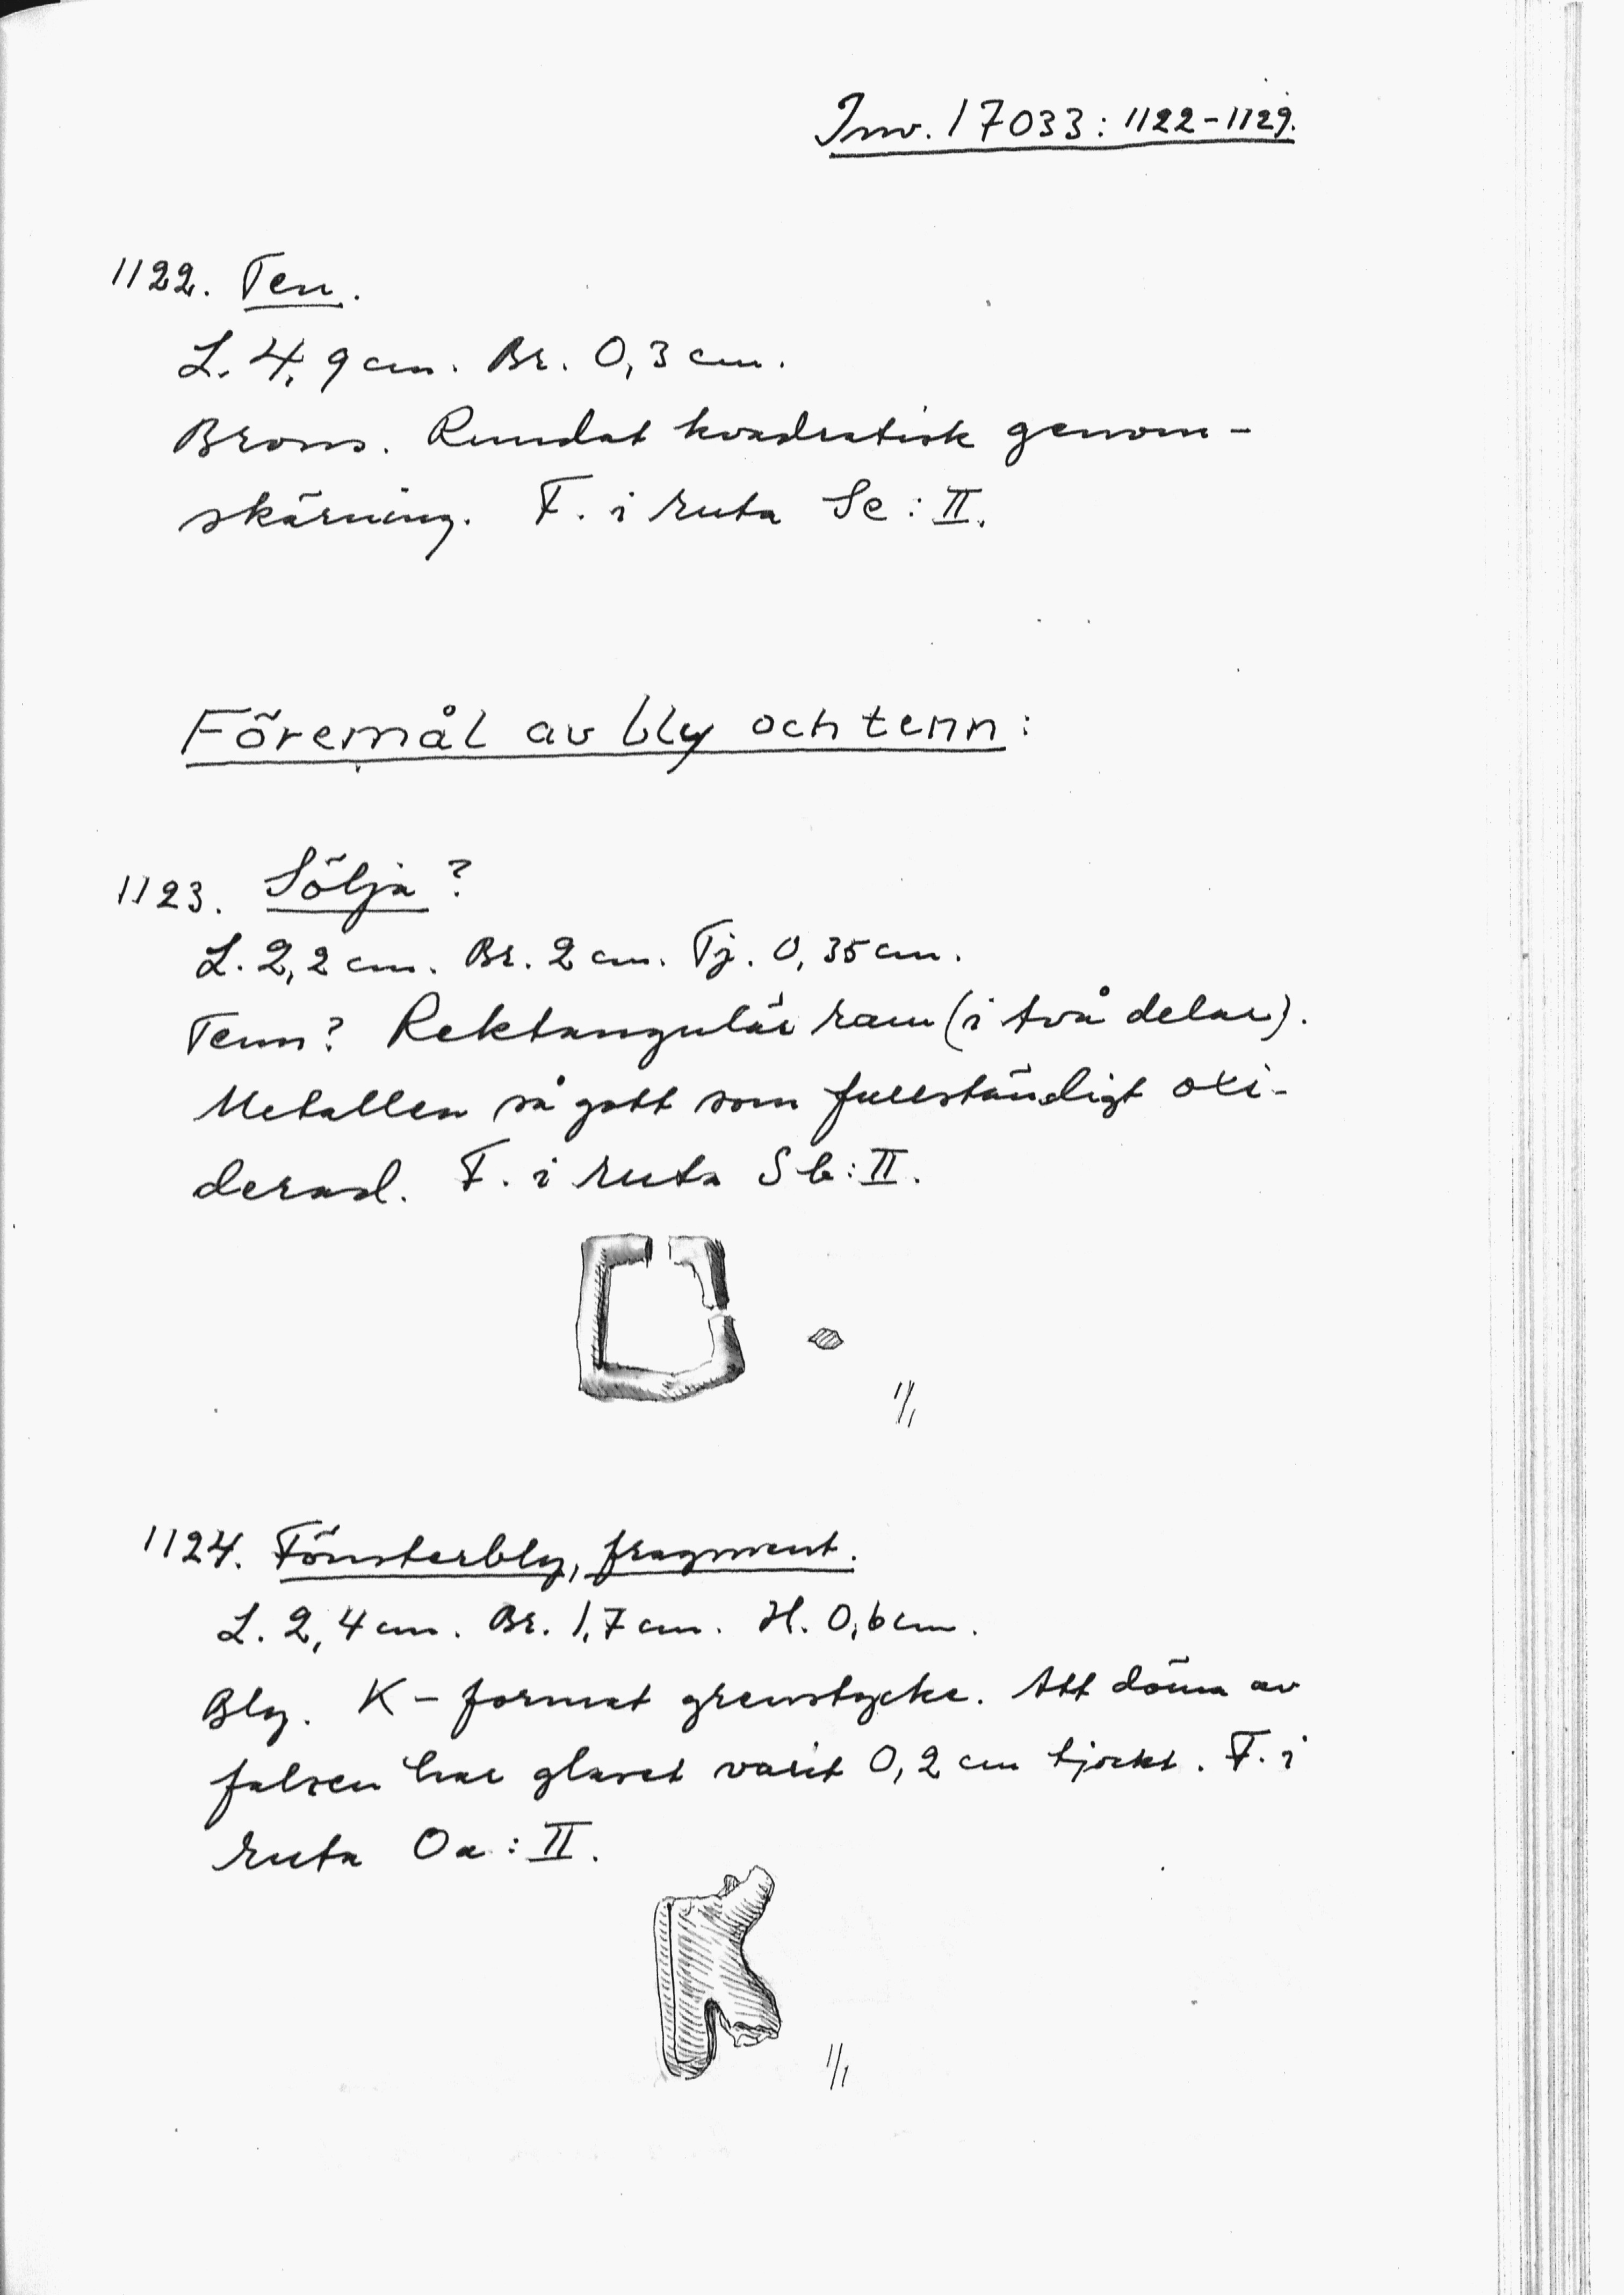 Inv. 17033: 1122-1129.
1122. Ten.
L. 4,9 cm. Br. 0,3 cm.
Brons. Rundat kvadratisk genom-
skärning. F. i ruta Se: II.
Föremål av bly och tenn:
1123. Sölja?
L. 2,2 cm. Br. 2 cm. Tj. 0,35 cm.
Tenn? Rektangulär ram (i två delar).
Metallen så gott som fullständigt oxi-
derad. F. i ruta Sb: II.
1/1
1124. Fönsterbly, fragment.
L. 2,4 cm. Br. 1,7 cm. H. 0,6 cm.
Bly. K-format grenstycke. Att döma av
falsen har glaset varit 0,2 cm tjockt. F. i
ruta Oa: II.
1/1